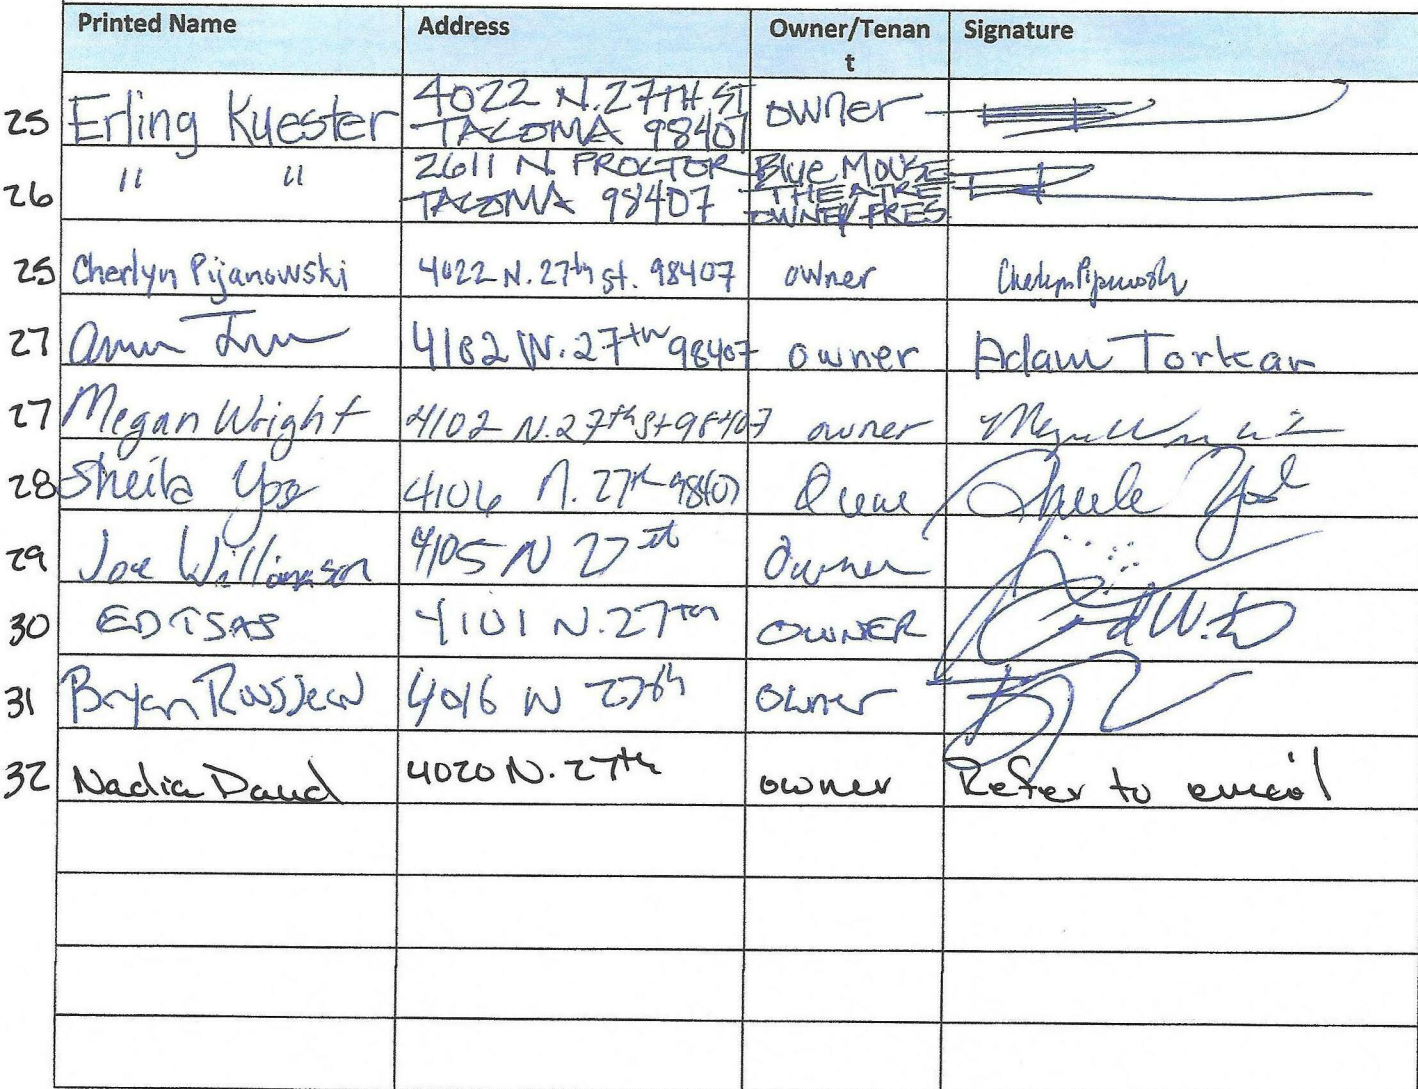 Printed Name Address Owner/Tenan Signature
t
25 Erling Kuester 4022 N. 27TH ST owner
TACOMA 98407
26 " " 2611 N. PROCTOR Blue MOUSE
TACOMA 98407 THEATRE
OWNER/PRES
25 Cherlyn Pijanowski 4022 N. 27th st. 98407 owner Cherlyn Pijanowski
27 4102 N. 27th 98407 owner Adam Torkar
27 Megan Wright 4102 N. 27th St 98407 owner
28 Sheila Yost 4106 N. 27th 98407 Owner Sheila Yost
29 Joe Williamson 4105 N 27 Owner
30 ED TSAS 4101 N. 27TH OWNER
31 Bryan 4016 N 27th owner
32 Nadia Daud 4020 N. 27th owner Refer to email